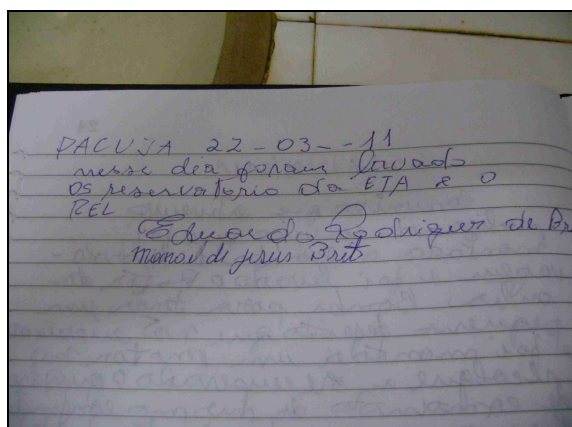 PACUJA 22-03--11
nesse dia foram lavado
os reservatorio da ETA e o
REL
Eduardo Rodrigues de
de Jesus Brito